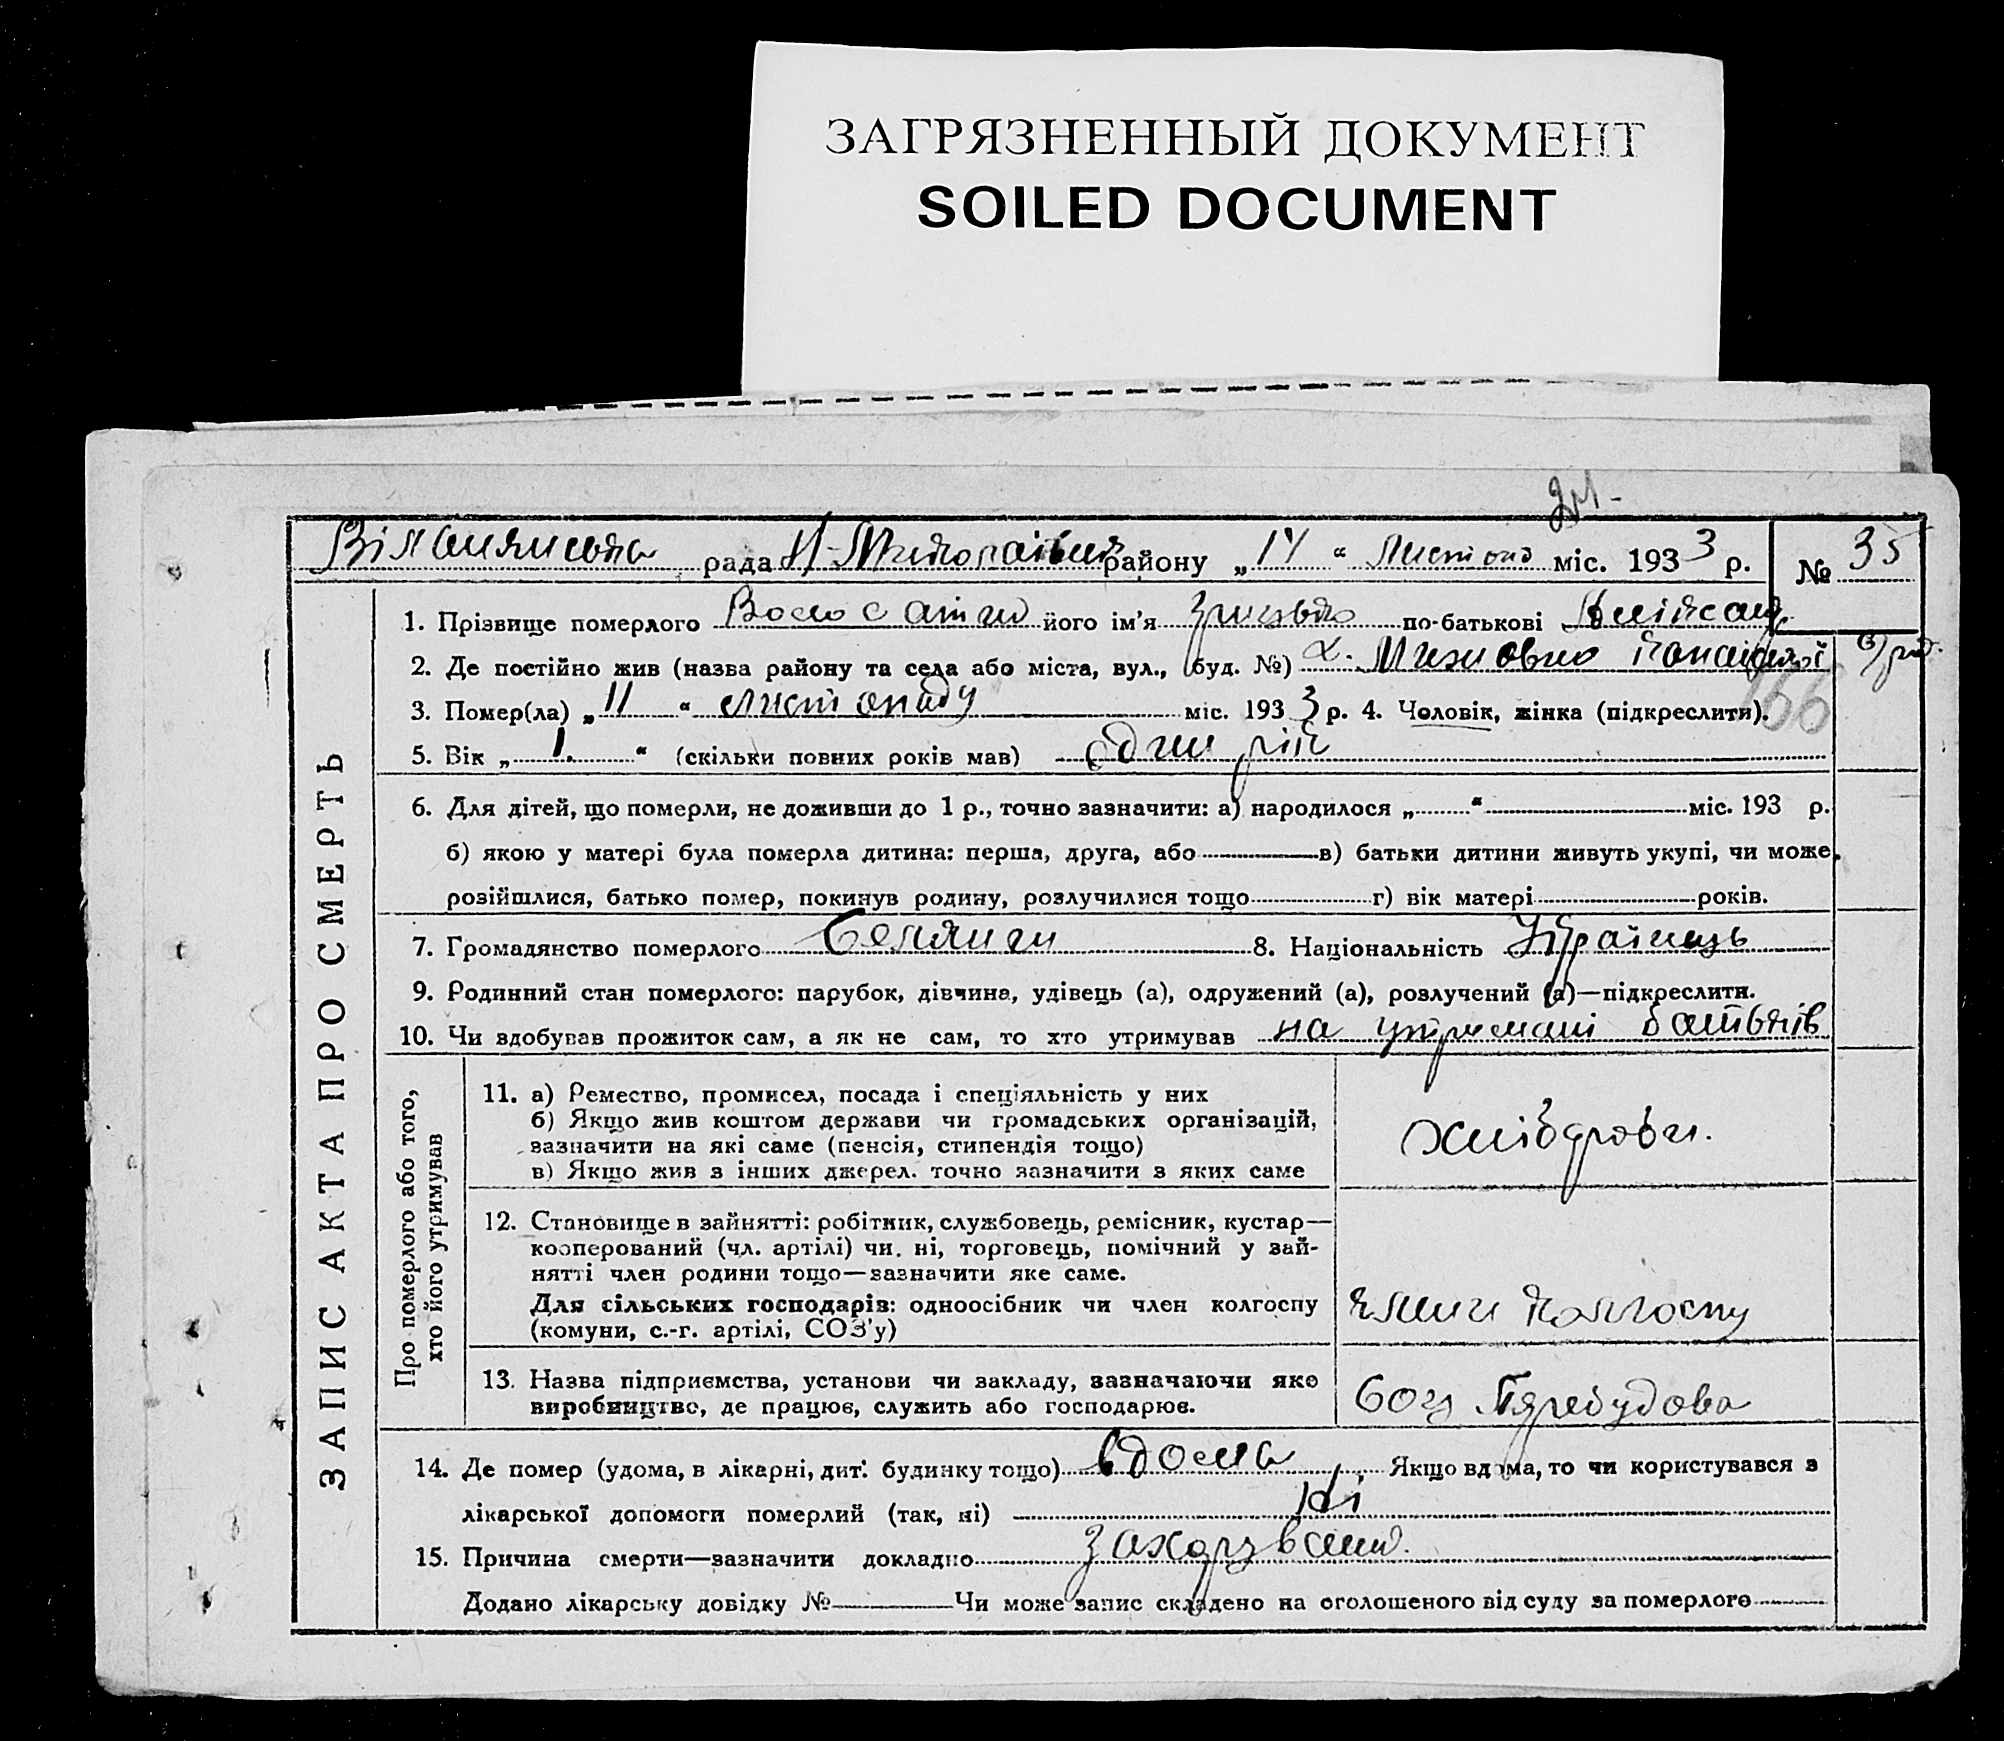 ЗАГРЯЗНЕННЫЙ ДОКУМЕНТ
SOILED DOCUMENT
рада Н-Миколаївка району „14“ Листопад міс. 1933 р. № 35
1. Прізвище померлого його ім'я по-батькові
2. Де постійно жив (назва району та села або міста, вул., буд. №)
166
3. Помер(ла) „11“ листопаду міс. 1933 р. 4. Чоловік, жінка (підкреслити).
5. Вік „1.“ (скільки повних років мав) один рік
6. Для дітей, що померли, не доживши до 1 р., точно зазначити: а) народилося „ “ міс. 193 р.
б) якою у матері була померла дитина: перша, друга, або в) батьки дитини живуть укупі, чи може
розійшлися, батько помер, покинув родину, розлучилися тощо г) вік матері років.
7. Громадянство померлого Селянин 8. Національність Українець
9. Родинний стан померлого: парубок, дівчина, удівець (а), одружений (а), розлучений (а)—підкреслити.
10. Чи здобував прожиток сам, а як не сам, то хто утримував на утримані батьків
ЗАПИС АКТА ПРО СМЕРТЬ
Про померлого або того,
хто його утримував
11. а) Ремество, промисел, посада і спеціяльність у них
б) Якщо жив коштом держави чи громадських організацій,
зазначити на які саме (пенсія, стипендія тощо)
в) Якщо жив з інших джерел. точно зазначити з яких саме
хлібороби.
12. Становище в зайнятті: робітник, службовець, ремісник, кустар—
кооперований (чл. артілі) чи. ні, торговець, помічний у зай-
нятті член родини тощо—зазначити яке саме.
Для сільських господарів: одноосібник чи член колгоспу
(комуни, с.-г. артілі, СОЗ'у)
члени колгоспу
13. Назва підприємства, установи чи закладу, зазначаючи яке
виробництво, де працює, служить або господарює.
Соц Перебудова
14. Де помер (удома, в лікарні, дит. будинку тощо) вдома Якщо вдома, то чи користувався з
лікарської допомоги померлий (так, ні) Ні
15. Причина смерти—зазначити докладно
Додано лікарську довідку № Чи може запис складено на оголошеного від суду за померлого